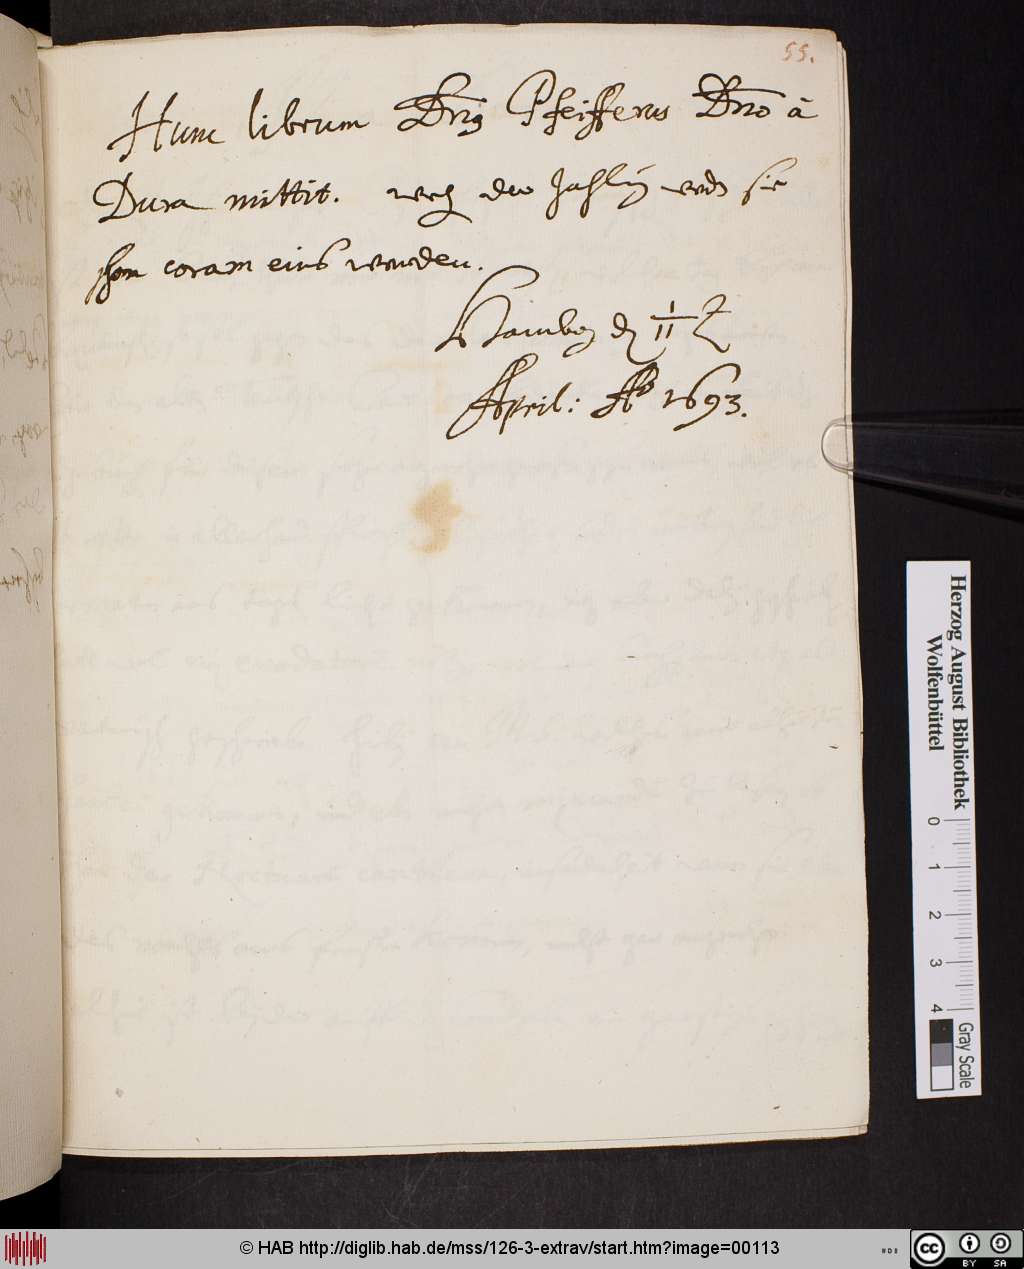 55.
Hunc librum Dn9 Pfeifferus Dno à
Dura mittit. weg der Zahlung werdn sie
schon coram eins werden.
Hamb. d 1/11
April: Ao 1693.
Herzog August Bibliothek
Wolfenbüttel
0 1 2 3 4
Gray Scale
© HAB http://diglib.hab.de/mss/126-3-extrav/start.htm?image=00113
cc BY SA